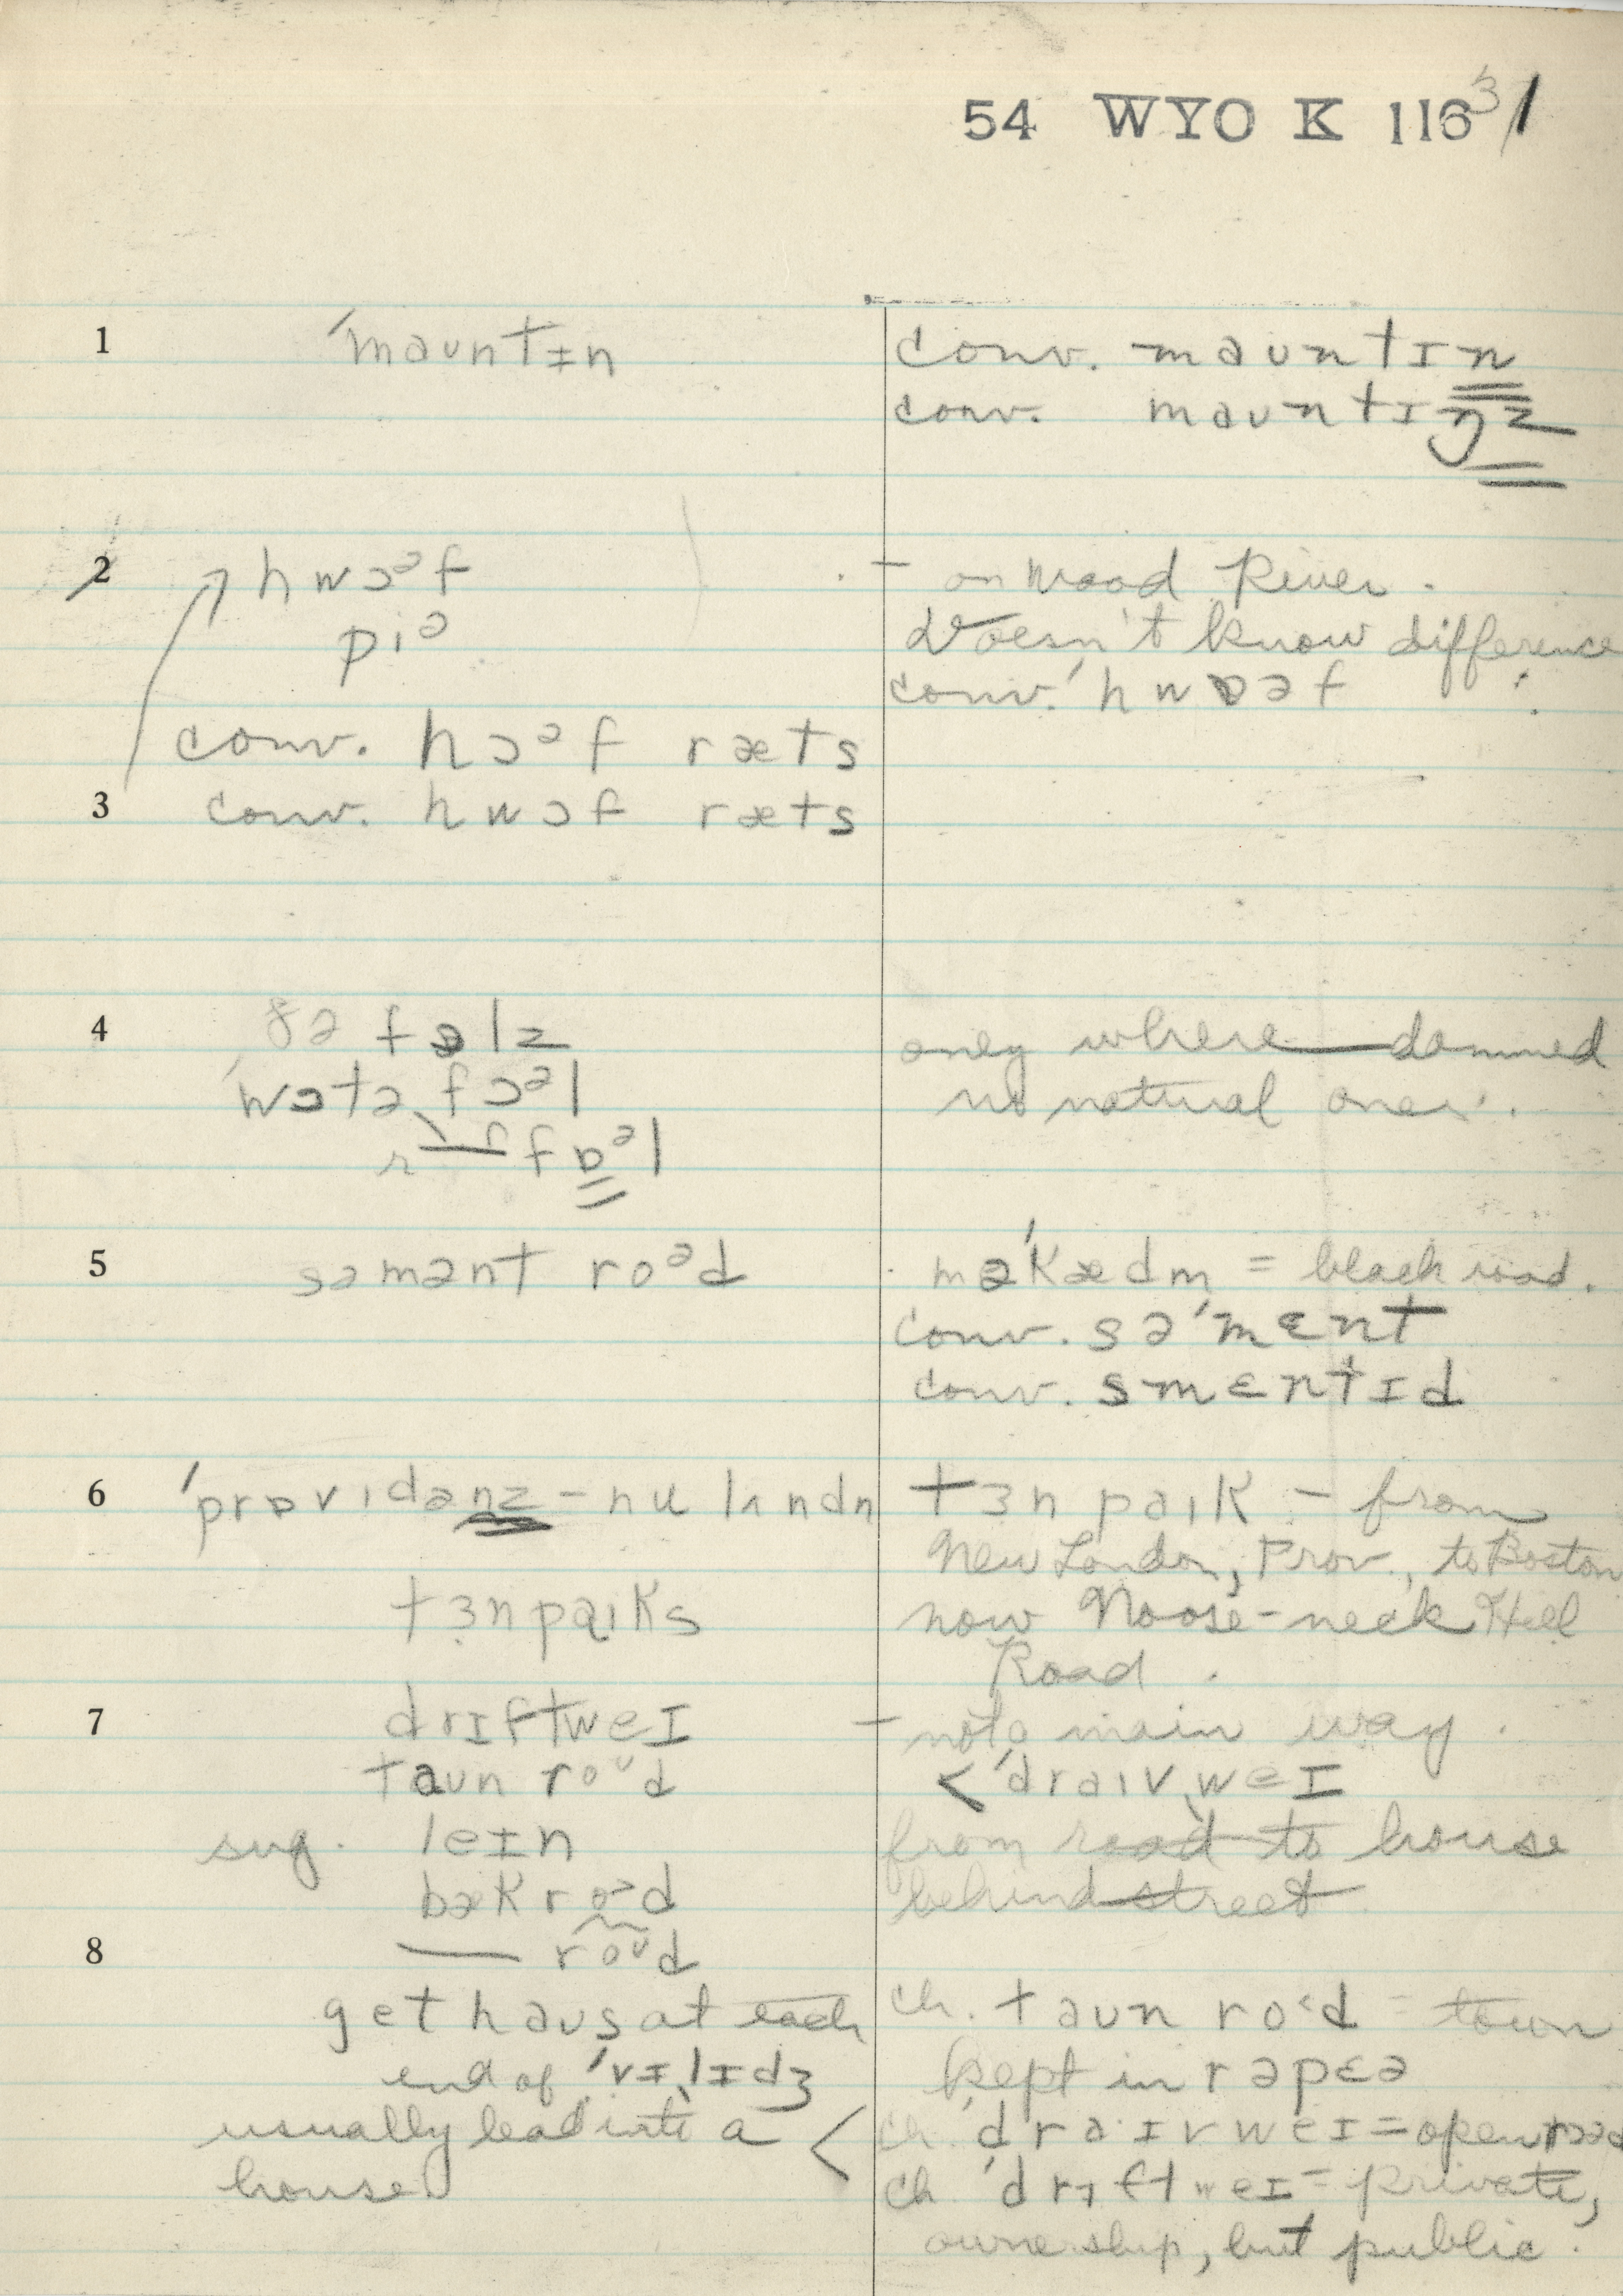 54 WYO K 116 3/1
1 ˈmaʊntɪn
conv. maʊntɪn
conv. maʊntɪŋz
2 hwɔᵊf
– on Wood River.
piᵊ
Doesn't know difference
conv. ˈhwɒəf
conv. hɔᵊf ræts
3 conv. hwɔf ræts
4 fɒlz
only where dammed
ˈwɔtə fɔᵊl
no natural ones.
r — fɒᵊl
5 səmənt roᵊd
məˈkædm = black road.
conv. səˈmɛnt
conv. smɛntɪd
6 ˈprɒvidənz – nu lʌndn
tɜn paɪk – from
New London, Prov., to Boston
tɜnpaɪks
now Noose-neck Hill
Road.
7 drɪftweɪ
– not a main way.
taʊn roᶷd
< ˈdraɪvˌweɪ
sug. leɪn
from road to house
bæk road
behind street
8 — roᶷd
get haʊs at each
ch. taʊn road – town
end of ˈvɪlɪdʒ
kept in rəpɛə
usually lead into a <
ch. ˈdraɪvweɪ = open road
house
ch. ˈdrɪftweɪ = private,
ownership, but public.